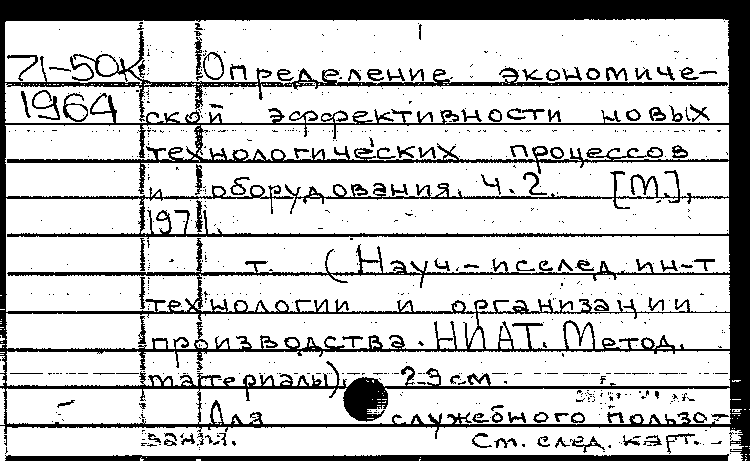 71-50К Определение экономиче-
1964 ской эффективности новых
технологических процессов
и оборудования. Ч.2. [М.],
1971.
т. (Науч.-исслед. ин-т
технологии и организации
производства. НИАТ. Метод.
материалы). 29 см.
Для служебного пользо-
вания. См. след. карт.